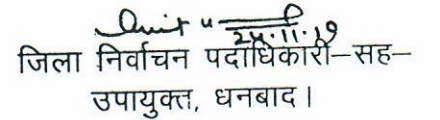 24.11.19
जिला निर्वाचन पदाधिकारी–सह–
उपायुक्त, धनबाद।